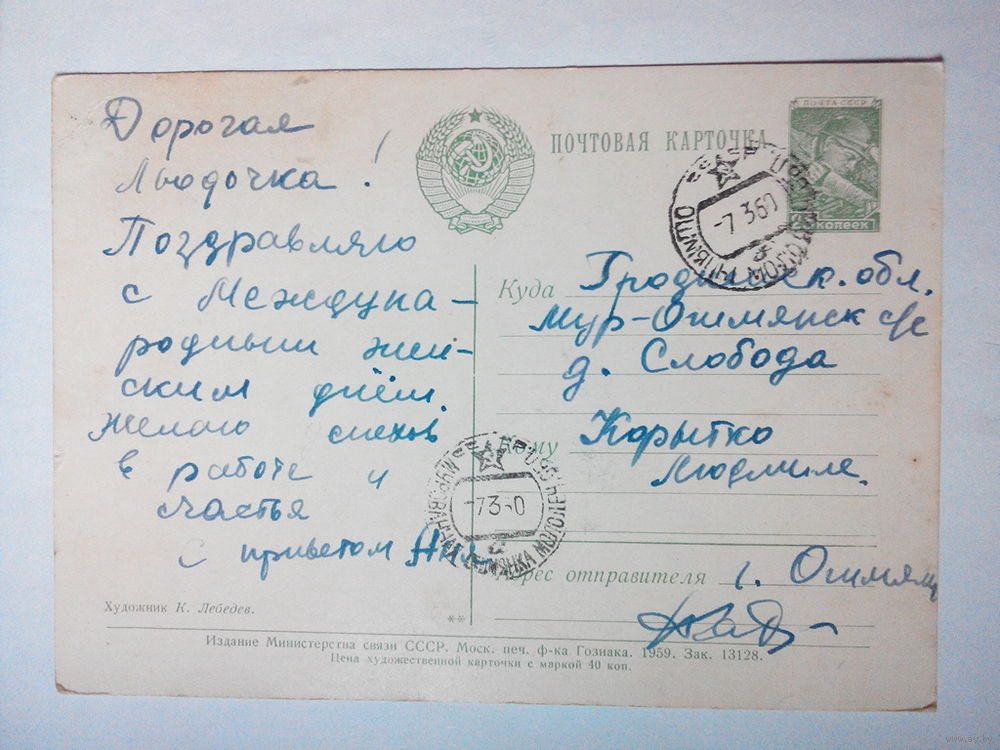 Дорогая
Людочка!
Поздравляю
с Междуна-
родным жен-
ским днём.
Желаю
в работе и
счастья
с приветом
ПОЧТОВАЯ КАРТОЧКА
ПОЧТА СССР
КОПЕЕК
-7 3 60
Куда Гродненск. обл.
Мур-Ошмянск с/с
д. Слобода
Кому Корытко
Людмиле.
-7 3 60
Адрес отправителя г. Ошмяны
Художник К. Лебедев.
**
Издание Министерства связи СССР. Моск. печ. ф-ка Гознака. 1959. Зак. 13128.
Цена художественной карточки с маркой 40 коп.
www.ay.by